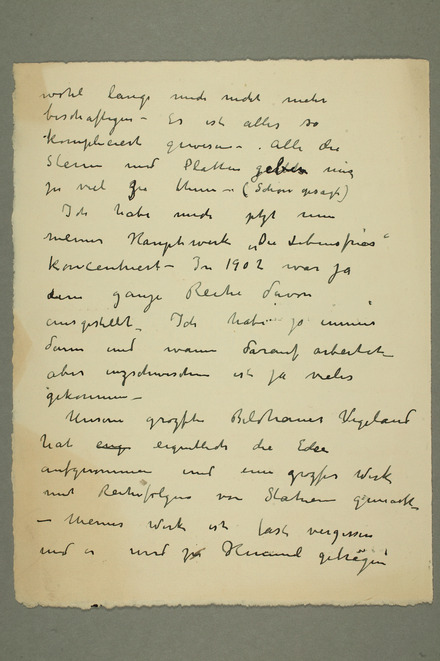 wohl lange mich nicht mehr
beschäftigen – Es ist alles so
kompliciert gewesen – . Alle die
Steine und Platten geben mir
zu viel zu thun – (Schon gesagt)
Ich habe mich jetzt um
meines Hauptwerk „Die Lebensfries“
koncentriert – In 1902 war ja
ganze Reihe davon
ausgestellt – Ich habe ja immer
dann und wann darauf arbeitet
aber inzschwischen ist ja vieles
gekommen –
Unsere grozste Bildhauer Vigeland
hat eigentlich die Idee
aufgenommen und ein grozses Werk
mit Reihefolgen von Statuen gemacht
– Meines Werk ist fast vergessen
und es wird Vigeland